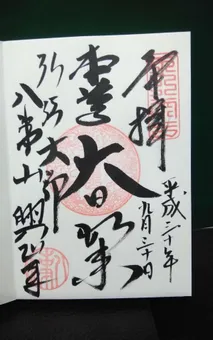 奉拝
平成三十年
九月三十日
本尊
大日如来
弘法大師
八事山 興正寺